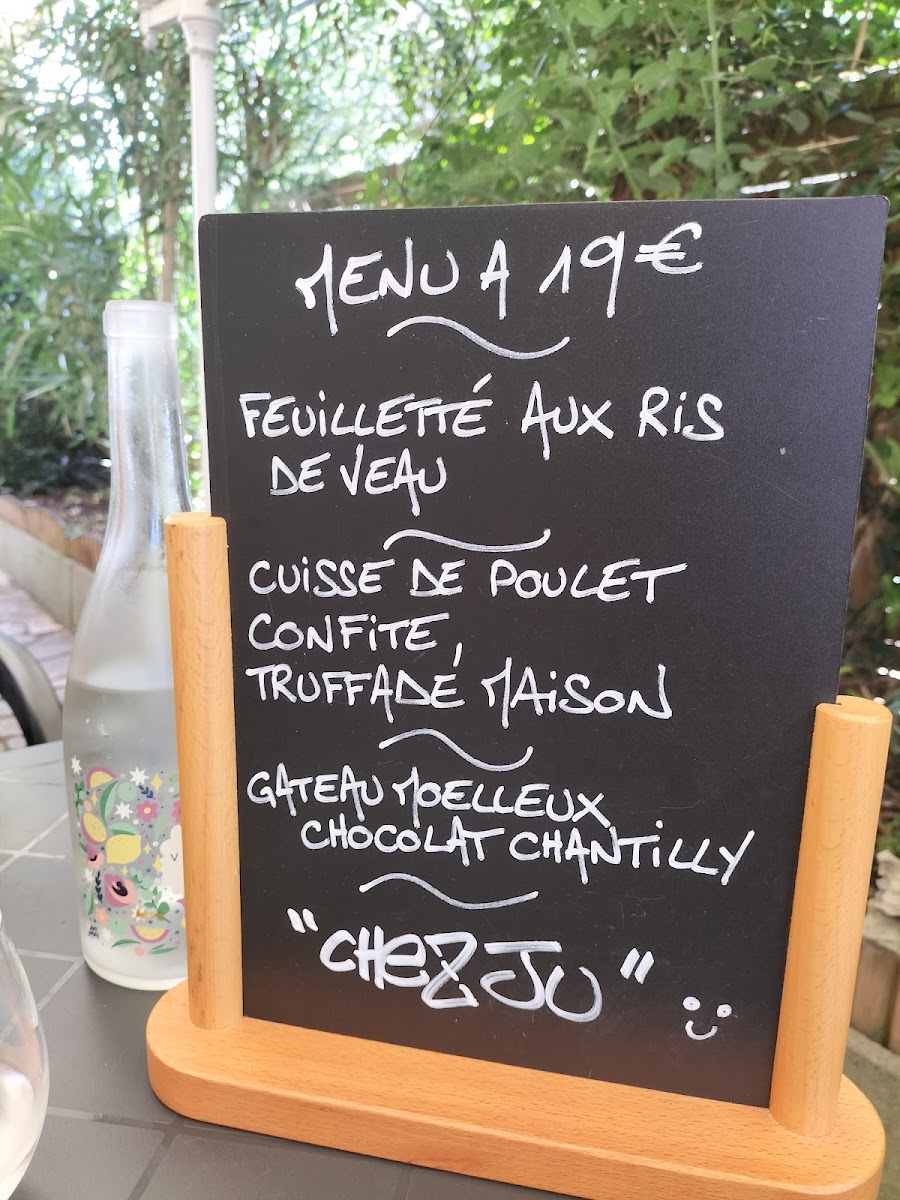 MENU A 19€
FEUILLETTÉ AUX RIS
DE VEAU
CUISSE DE POULET
CONFITE,
TRUFFADE MAISON
GATEAU MOELLEUX
CHOCOLAT CHANTILLY
"CHEZ JU"